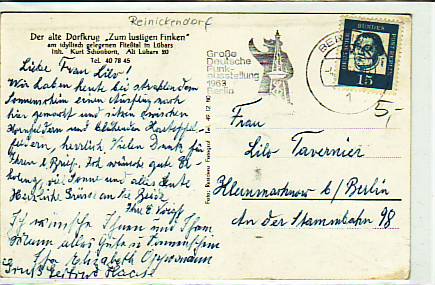 Reinickendorf
Der alte Dorfkrug "Zum lustigen Finken"
am idyllisch gelegenen Fließtal in Lübars
Inh. Kurt Schonborn, Alt Lübars
Tel. 40 78 45
Liebe Frau Lilo!
Wir haben heute bei strahlendem
Sonnenschein einen Ausflug nach
hier gemacht und sitzen zwischen
Kornfeldern und blühenden Kartoffel-
feldern, herrlich. Vielen Dank für
Ihren l. Brief. Ich wünsche gute Er-
holung, viel Sonne und alles Gute
Herzliche Grüsse an Sie
Ihre E. Voigt
Ich wünsche Ihnen und Ihrem
Mann alles Gute u. Sonnenschein
Ihre Elizabeth Oppermann
Gruß Gertrud Haase
Große
Deutsche
Funk-
ausstellung
1963
Berlin
BERLIN
1
DEUTSCHE BUNDESPOST
15
5,-
Frau
Lilo Tavernier
Kleinmachnow b/Berlin
An der Stammbahn 98